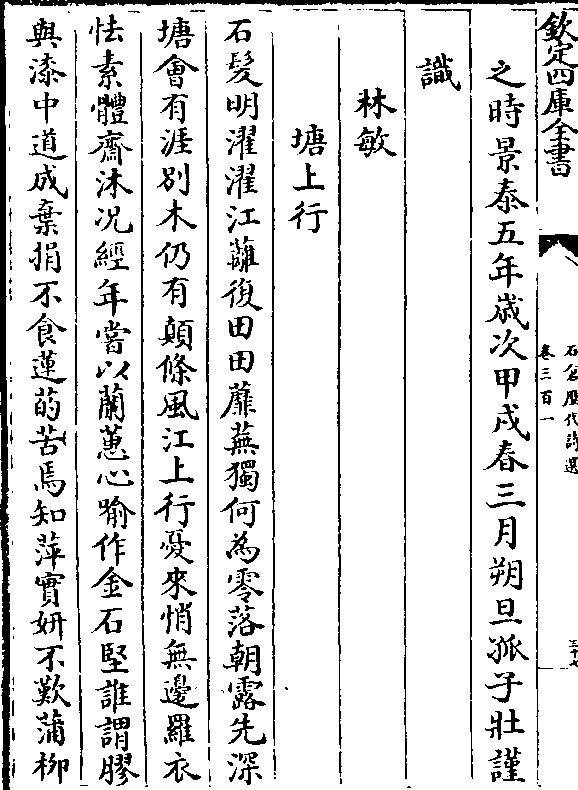 欽定四庫全書
石倉歷代詩選
卷三百一
之時景泰五年歲次甲戌春三月朔旦孤子壯謹
識
林敏
塘上行
石髮明濯濯江蘺復田田蘼蕪獨何為零落朝露先深
塘會有涯別木仍有顛條風江上行憂來悄無邊羅衣
怯素體齋沐况經年嘗以蘭蕙心喻作金石堅誰謂膠
與漆中道成棄捐不食蓮菂苦焉知萍實妍不歎蒲柳